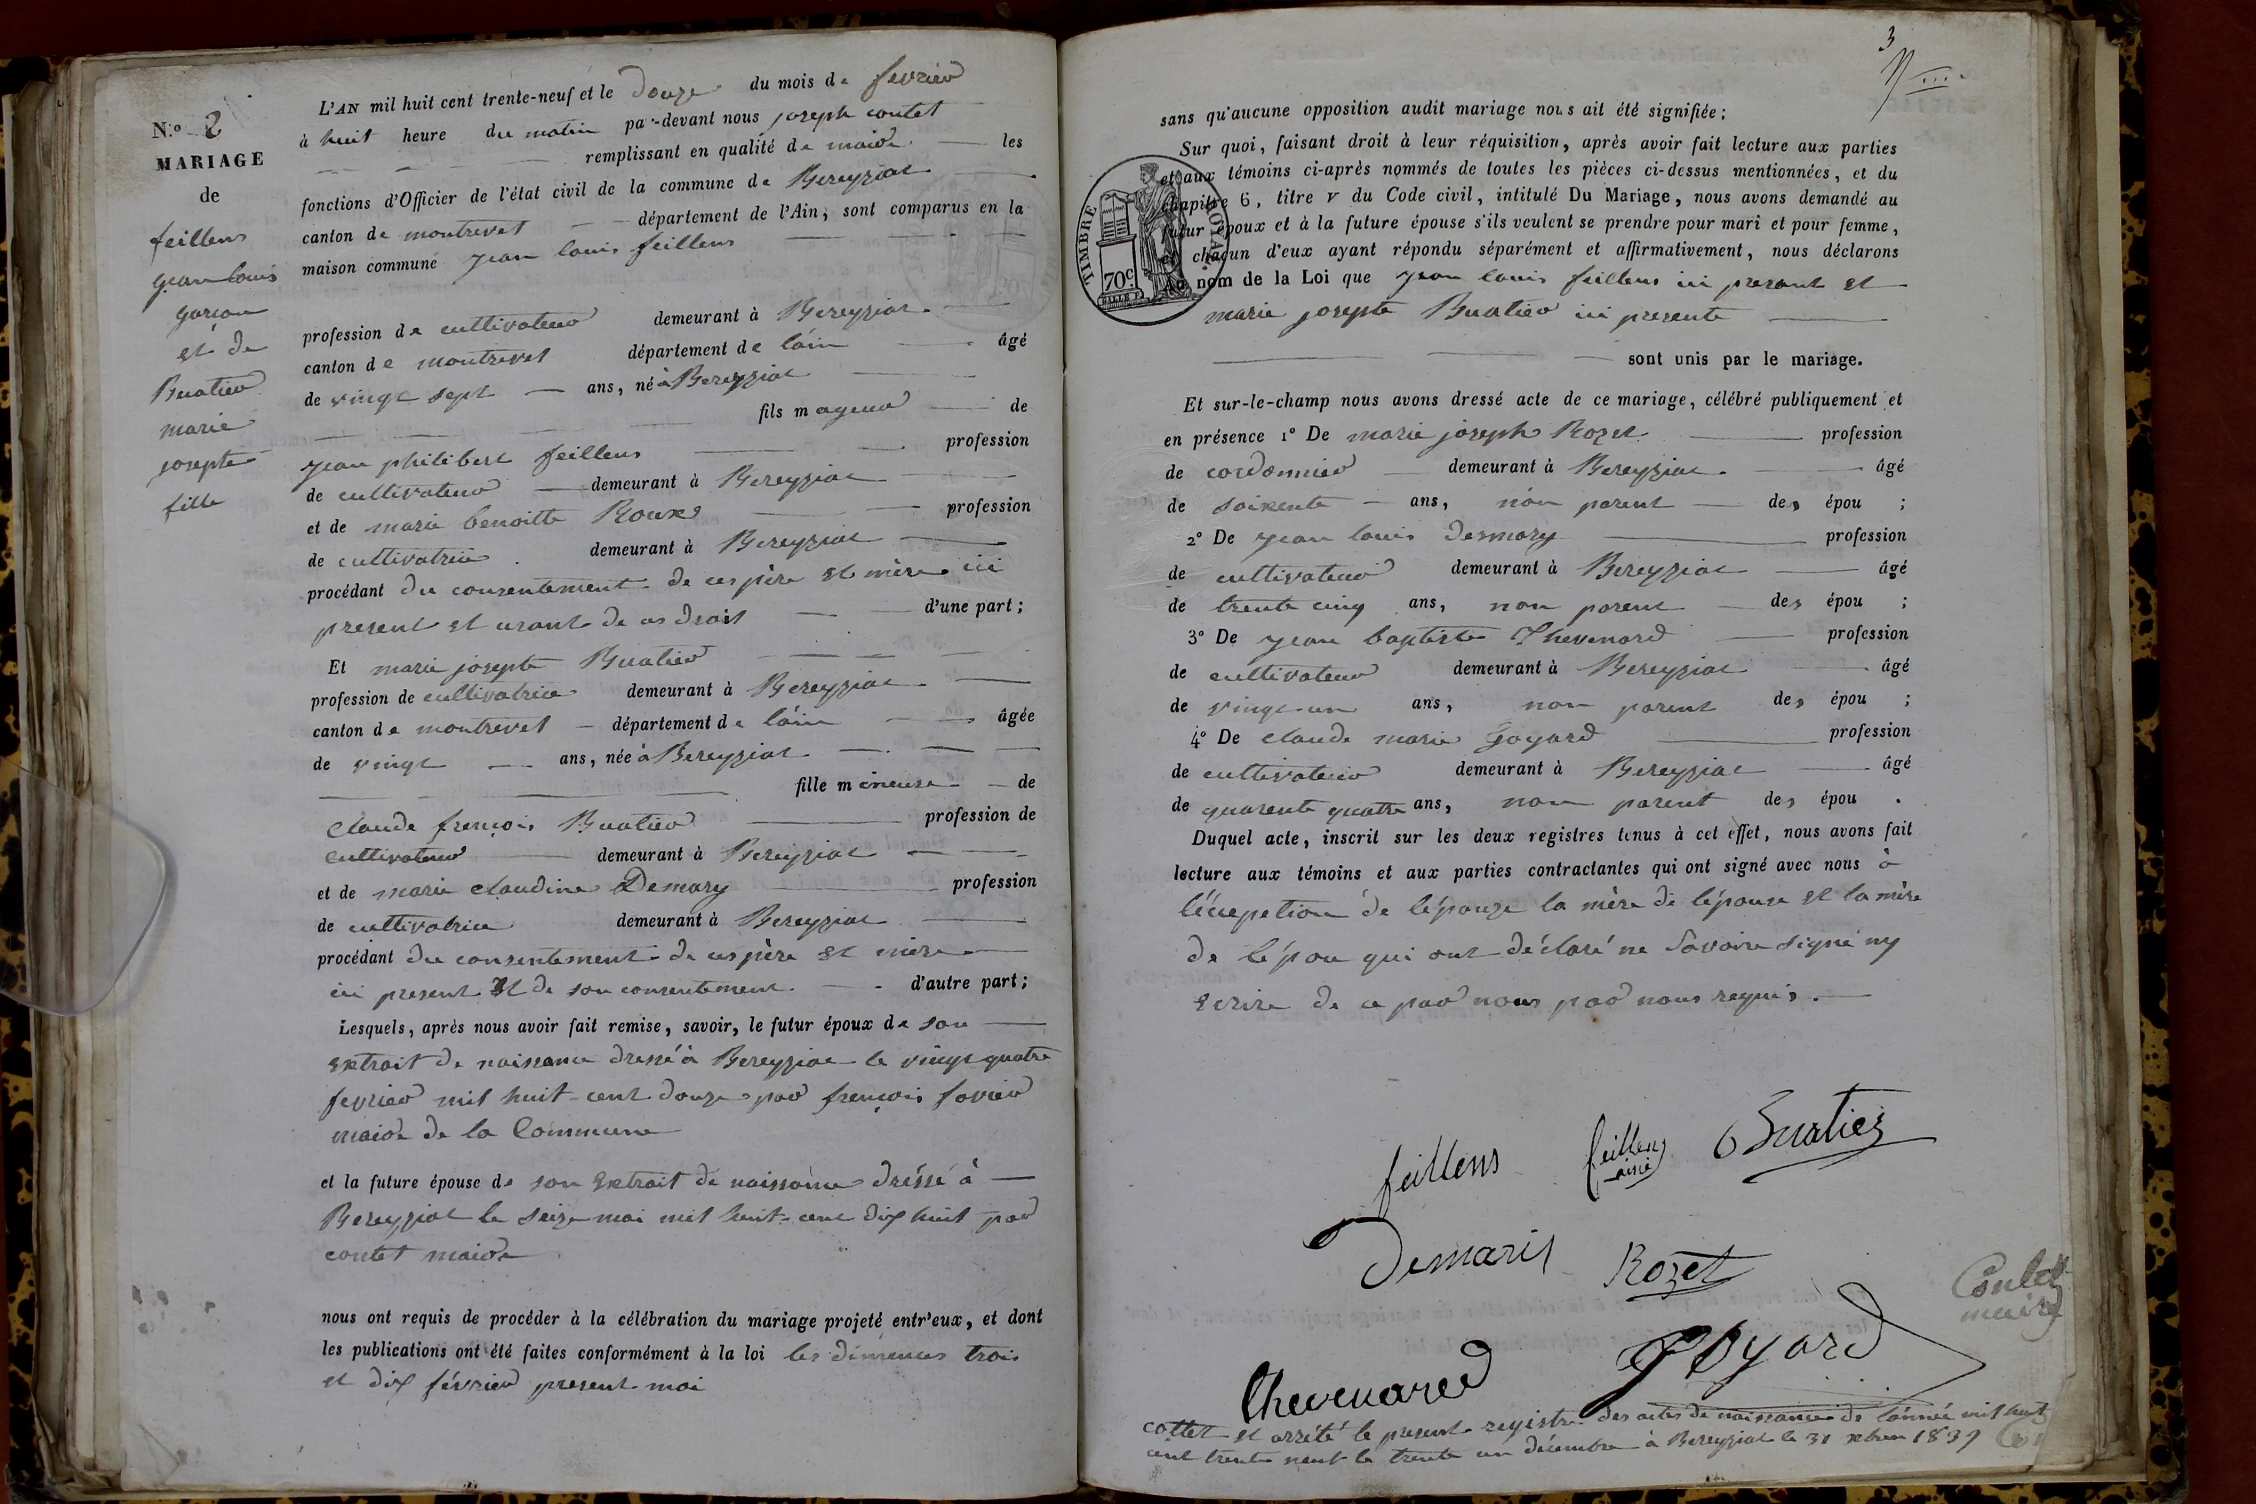 N.º 2
MARIAGE
de
feillens
jean louis
garçon
et de
Buatier
marie
josepte
fille
L'AN mil huit cent trente-neuf et le douze du mois de fevrier
à huit heure du matin par-devant nous joseph coutet
remplissant en qualité de maire les
fonctions d'Officier de l'état civil de la commune de Bereyziat
canton de montrevet département de l'Ain, sont comparus en la
maison commune jean louis feillens
profession de cultivateur demeurant à Bereyziat
canton de montrevet département de l'ain âgé
de vingt sept ans, né à Bereyziat
fils mageur de
jean philibert feillens profession
de cultivateur demeurant à Bereyziat
et de marie benoitte Roux profession
de cultivatrice demeurant à Bereyziat
procédant du consentement de ces père et mère ici
present et usant de ces droit d'une part;
Et marie josepte Buatier
profession de cultivatrice demeurant à Bereyziat
canton de montrevet département de l'ain âgée
de vingt ans, née à Bereyziat
fille mineure de
claude françois Buatier profession de
cultivateur demeurant à Bereyziat
et de marie claudine Demary profession
de cultivatrice demeurant à Bereyziat
procédant du consentement de ces père et mère
ici present et de son consentement d'autre part;
Lesquels, après nous avoir fait remise, savoir, le futur époux de son
extrait de naissance dressé à Bereyziat le vingt quatre
fevrier mil huit cent douze par françois favier
maire de la Commune
et la future épouse de son extrait de naissance dréssé à
Bereyziat le seize mai mil huit cent dix huit par
coutet maire
nous ont requis de procéder à la célébration du mariage projeté entr'eux, et dont
les publications ont été faites conformément à la loi les dimences trois
et dix février present moi
3
sans qu'aucune opposition audit mariage nous ait été signifiée;
Sur quoi, faisant droit à leur réquisition, après avoir fait lecture aux parties
et aux témoins ci-après nommés de toutes les pièces ci-dessus mentionnées, et du
chapitre 6, titre V du Code civil, intitulé Du Mariage, nous avons demandé au
futur époux et à la future épouse s'ils veulent se prendre pour mari et pour femme,
et chacun d'eux ayant répondu séparément et affirmativement, nous déclarons
au nom de la Loi que jean louis feillens ici present et
marie josepte Buatier ici presente
sont unis par le mariage.
TIMBRE ROYAL
70c
Et sur-le-champ nous avons dressé acte de ce mariage, célébré publiquement et
en présence 1º De marie joseph Rozet profession
de cordonnier demeurant à Bereyziat âgé
de soixente ans, non parent des épou ;
2º De jean louis Desmary profession
de cultivateur demeurant à Bereyziat âgé
de trente cinq ans, non parent des épou ;
3º De jean baptiste Thevenard profession
de cultivateur demeurant à Bereyziat âgé
de vingt un ans, non parent des épou ;
4º De claude marie Goyard profession
de cultivateur demeurant à Bereyziat âgé
de quarente quatre ans, non parent des épou .
Duquel acte, inscrit sur les deux registres tenus à cet effet, nous avons fait
lecture aux témoins et aux parties contractantes qui ont signé avec nous à
l'écepetion de l'épouze la mère de l'épouse et la mère
de l'épou qui ont déclaré ne savoire signé ny
ecrire de ce par nous par nous requis.
feillens feillens Buatier
ainé
Demaris Rozet
Coutet
maire
Chevenard Goyard
cottet et arrété le present registre des actes de naissance de l'année mil huit
cent trente neuf le trente un décembre à Bereyziat le 31 xbre 1839